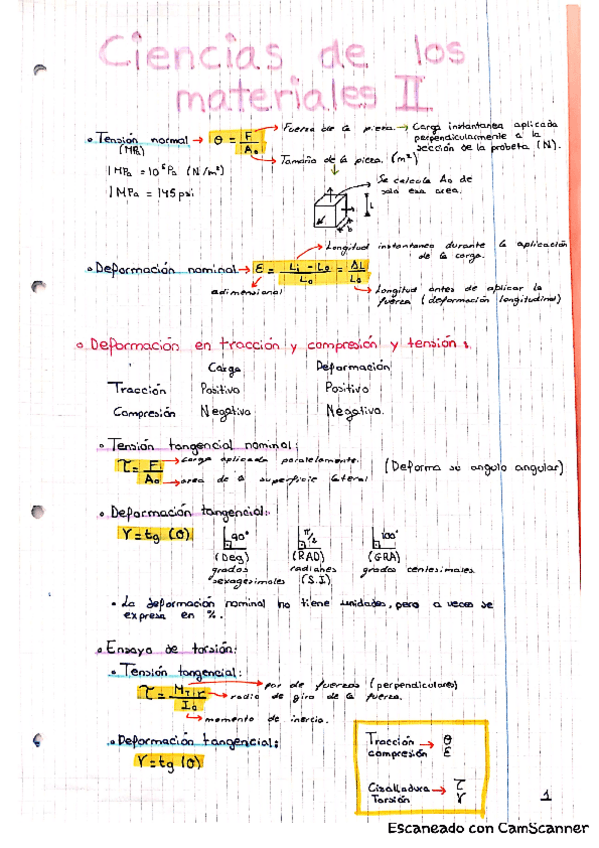 Ciencias de los
materiales II
Tensión normal → θ = F / A₀
(MPa)
Fuerza de la pieza. → Carga instantanea aplicada
perpendicularmente a la
sección de la probeta (N).
Tamaño de la pieza. (m²)
1 MPa = 10⁶ Pa (N/m²)
1 MPa = 145 psi
Se calcula A₀ de
solo esa area.
Longitud instantanea durante la aplicación
de la carga.
Deformación nominal → ε = Li - L₀ / L₀ = ΔL / L₀
adimensional
Longitud antes de aplicar la
fuerza (deformación longitudinal)
Deformación en tracción y compresión y tensión:
Carga Deformación
Tracción Positivo Positivo
Compresión Negativo Negativo.
Tensión tangencial nominal:
τ = F / A₀
carga aplicada paralelamente.
area de la superficie lateral
(Deforma su angulo angular)
Deformación tangencial:
γ = tg (θ)
90° π/2 100°
(Deg) (RAD) (GRA)
grados radianes grados centesimales
sexagesimales (S.I.)
La deformación nominal no tiene unidades, pero a veces se
expresa en %.
Ensayo de torsión:
Tensión tangencial:
τ = M_T · r / I₀
par de fuerzas (perpendiculares)
radio de giro de la fuerza.
momento de inercia.
Deformación tangencial:
γ = tg (θ)
Tracción → θ
compresión ε
Cizalladura → τ
Torsión γ
1
Escaneado con CamScanner